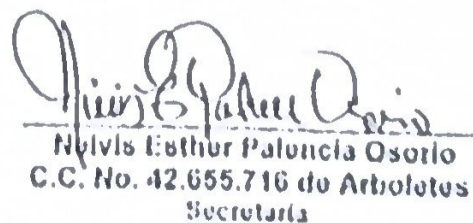 Nelvis Esther Palencia Osorio
C.C. No. 42.655.716 de Arboletes
Secretaria